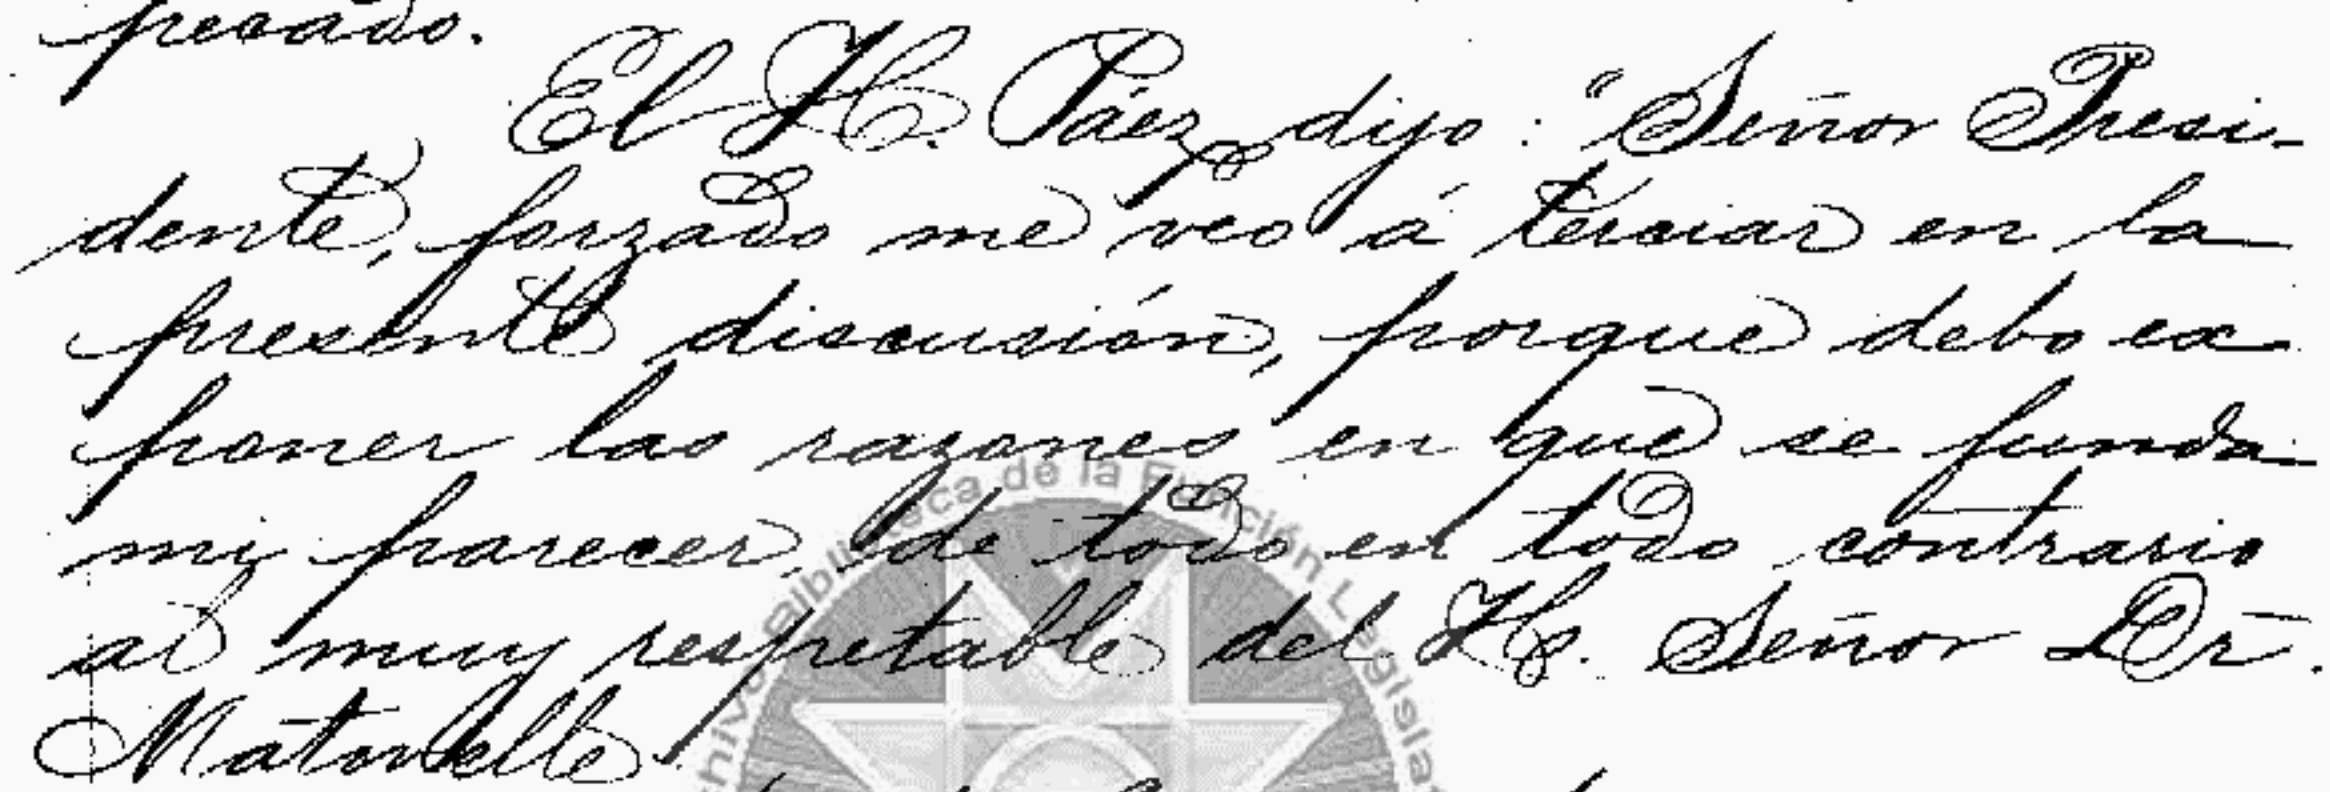 pesado.
El H. Páez dijo: "Señor Presi-
dente, forzado me veo á terciar en la
presente discusión, porque debo ex-
poner las razones en que se funda
mi parecer, de todo en todo contrario
al muy respetable del H. Señor Dr.
Matovelle.
Archivo Biblioteca de la Función Legislat